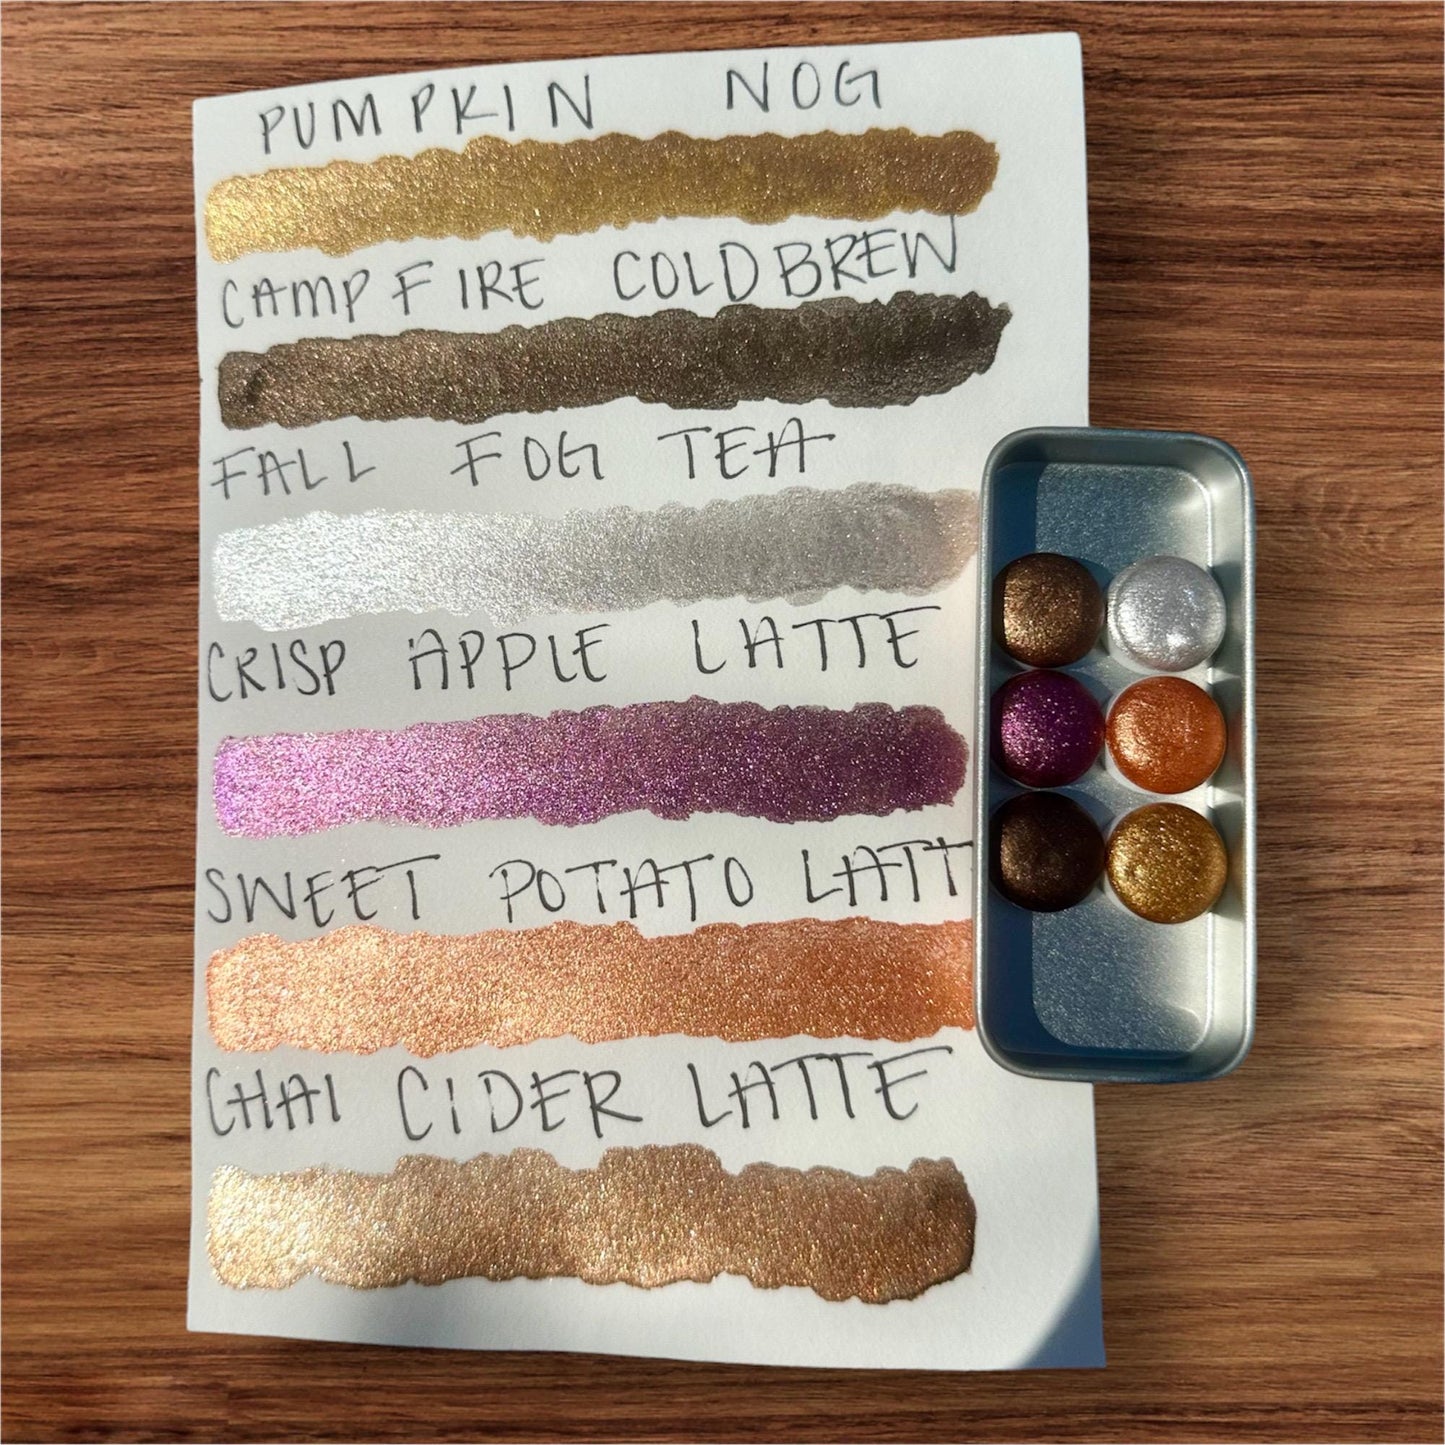 PUMPKIN NOG
CAMPFIRE COLD BREW
FALL FOG TEA
CRISP APPLE LATTE
SWEET POTATO LATT
CHAI CIDER LATTE